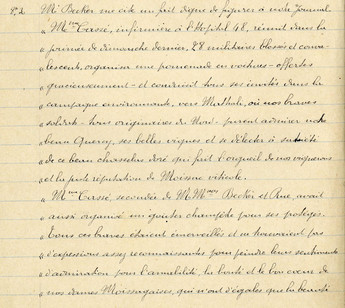 P. 2 Mr Becker me cite un fait digne de figurer à votre Journal.
" Mme Cassé, infirmière à l'Hôpital 48, réunit dans la
" journée de dimanche dernier, 28 militaires blessés et conva-
" lescents, organise une promenade en voitures - offertes
" gracieusement - et conduit tous ses invités dans la
" campagne environnante, vers Mathaly, où nos braves
" soldats - tous originaires du Nord - purent admirer notre
" beau Quercy, ses belles vignes et se délecter à satiété
" de ce beau chasselas doré qui fait l'orgueil de nos vignerons
" et la juste réputation de Moissac viticole.
" Mme Cassé, secondée de MMmes Becker et Rue, avait
" aussi organisé un goûter champêtre pour ses protégés.
" Tous ces braves étaient émerveillés et ne trouvaient pas
" d'expressions assez reconnaissantes pour peindre leurs sentiments
" d'admiration pour l'amabilité, la bonté et le bon cœur de
" nos dames Moissagaises, qui n'ont d'égales que la beauté